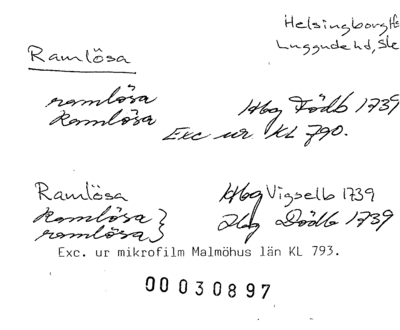 Helsingborg lfs
Luggude hd, Skå
Ramlösa
ramlösa Hbg Födb 1739
Ramlösa
Exc ur KL 790.
Ramlösa Hbg Vigselb 1739
Ramlösa } Hbg Dödb 1739
ramlösa }
Exc. ur mikrofilm Malmöhus län KL 793.
00030897